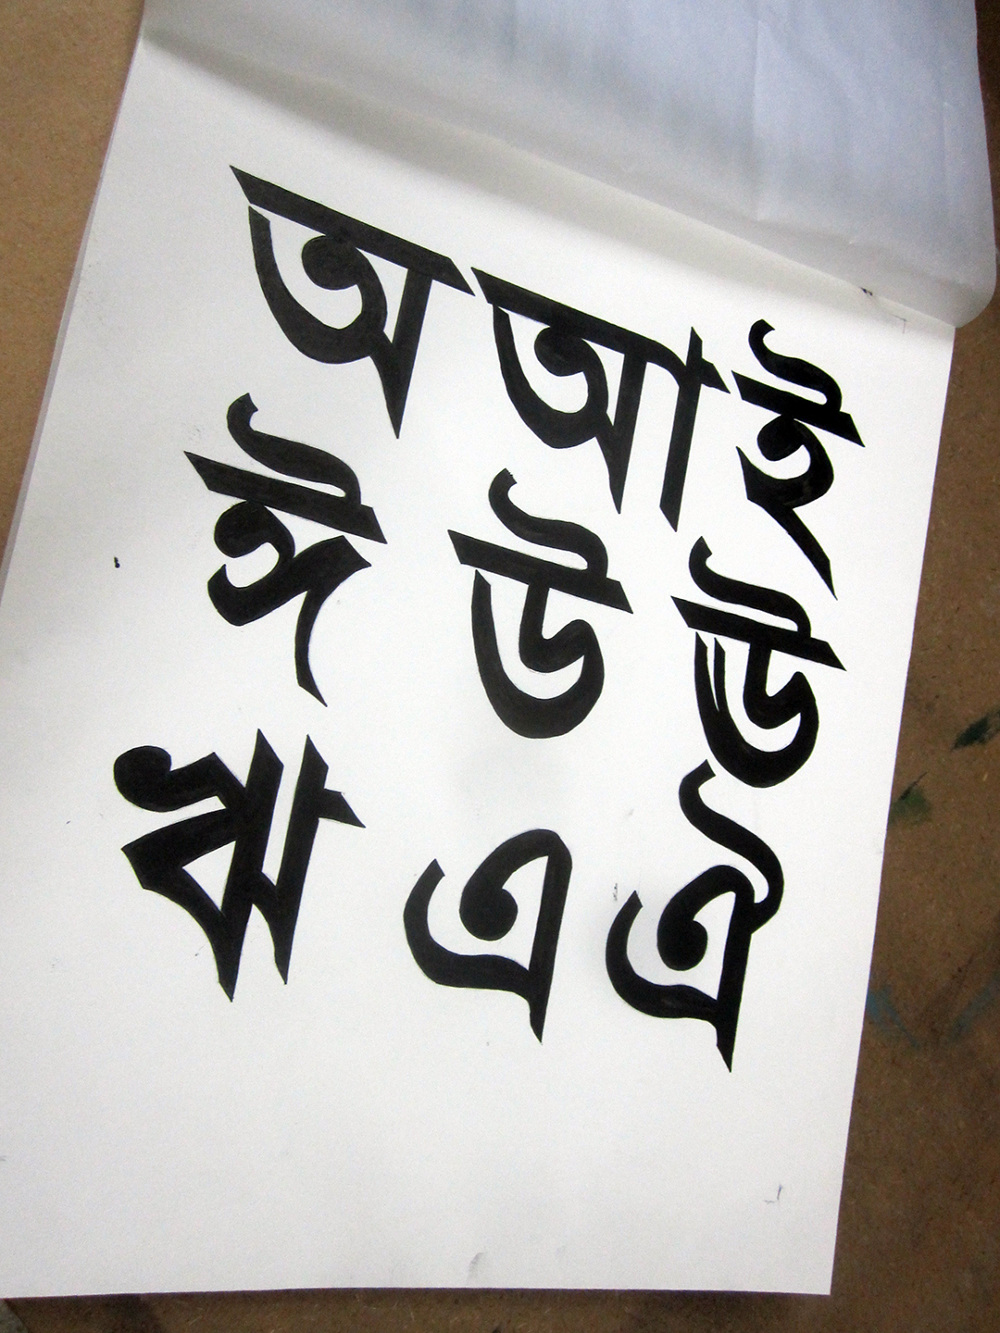 অ আ ই
ঈ উ ঊ
ঋ এ ঐ